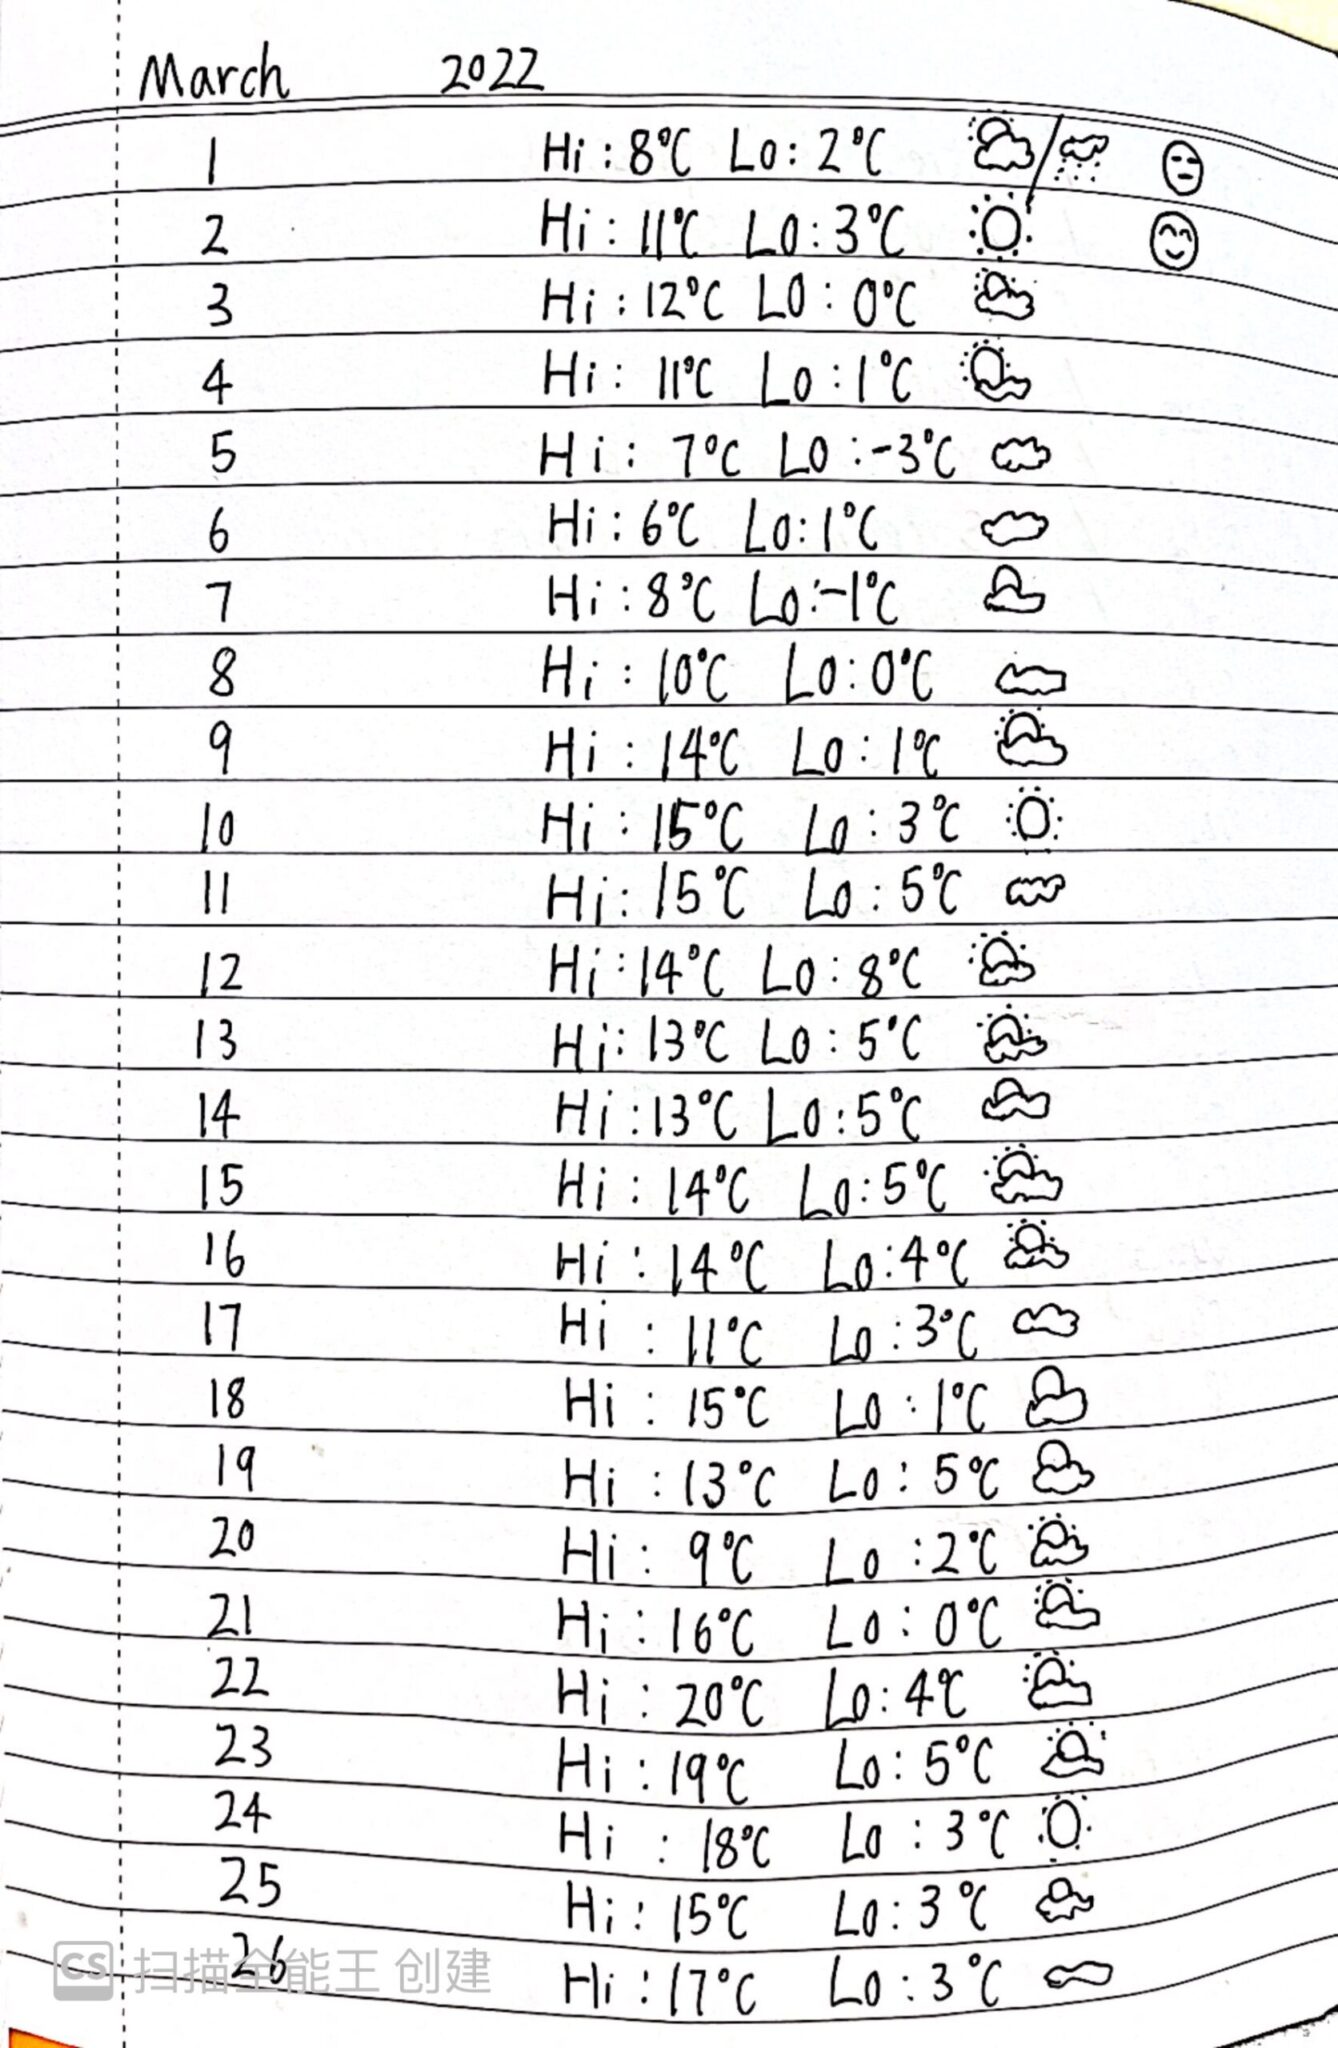 March 2022
1 Hi : 8°C Lo : 2°C
2 Hi : 11°C LO : 3°C
3 Hi : 12°C LO : 0°C
4 Hi : 11°C Lo : 1°C
5 Hi : 7°C LO : -3°C
6 Hi : 6°C Lo : 1°C
7 Hi : 8°C Lo : -1°C
8 Hi : 10°C LO : 0°C
9 Hi : 14°C Lo : 1°C
10 Hi : 15°C Lo : 3°C
11 Hi : 15°C Lo : 5°C
12 Hi : 14°C Lo : 8°C
13 Hi : 13°C LO : 5°C
14 Hi : 13°C LO : 5°C
15 Hi : 14°C Lo : 5°C
16 Hi : 14°C Lo : 4°C
17 Hi : 11°C Lo : 3°C
18 Hi : 15°C Lo : 1°C
19 Hi : 13°C Lo : 5°C
20 Hi : 9°C Lo : 2°C
21 Hi : 16°C Lo : 0°C
22 Hi : 20°C Lo : 4°C
23 Hi : 19°C Lo : 5°C
24 Hi : 18°C Lo : 3°C
25 Hi : 15°C Lo : 3°C
26 Hi : 17°C Lo : 3°C
CS 扫描全能王 创建